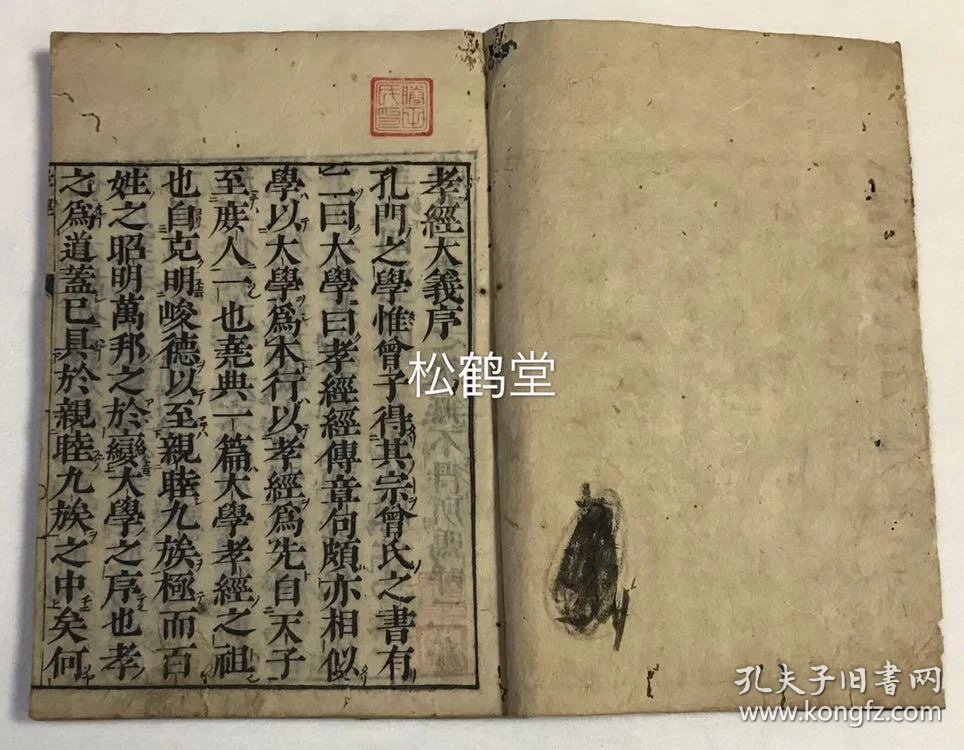 孝經大義序
孔門之學惟曾子得其宗曾氏之書有
二曰大學曰孝經經傳章句頗亦相似
學以大學爲本行以孝經爲先自天子
至庶人一也堯典一篇大學孝經之祖
也自克明峻德以至親睦九族極而百
姓之昭明萬邦之於變大學之序也孝
之爲道蓋已具於親睦九族之中矣何
松鹤堂
孔夫子旧书网
www.kongfz.com